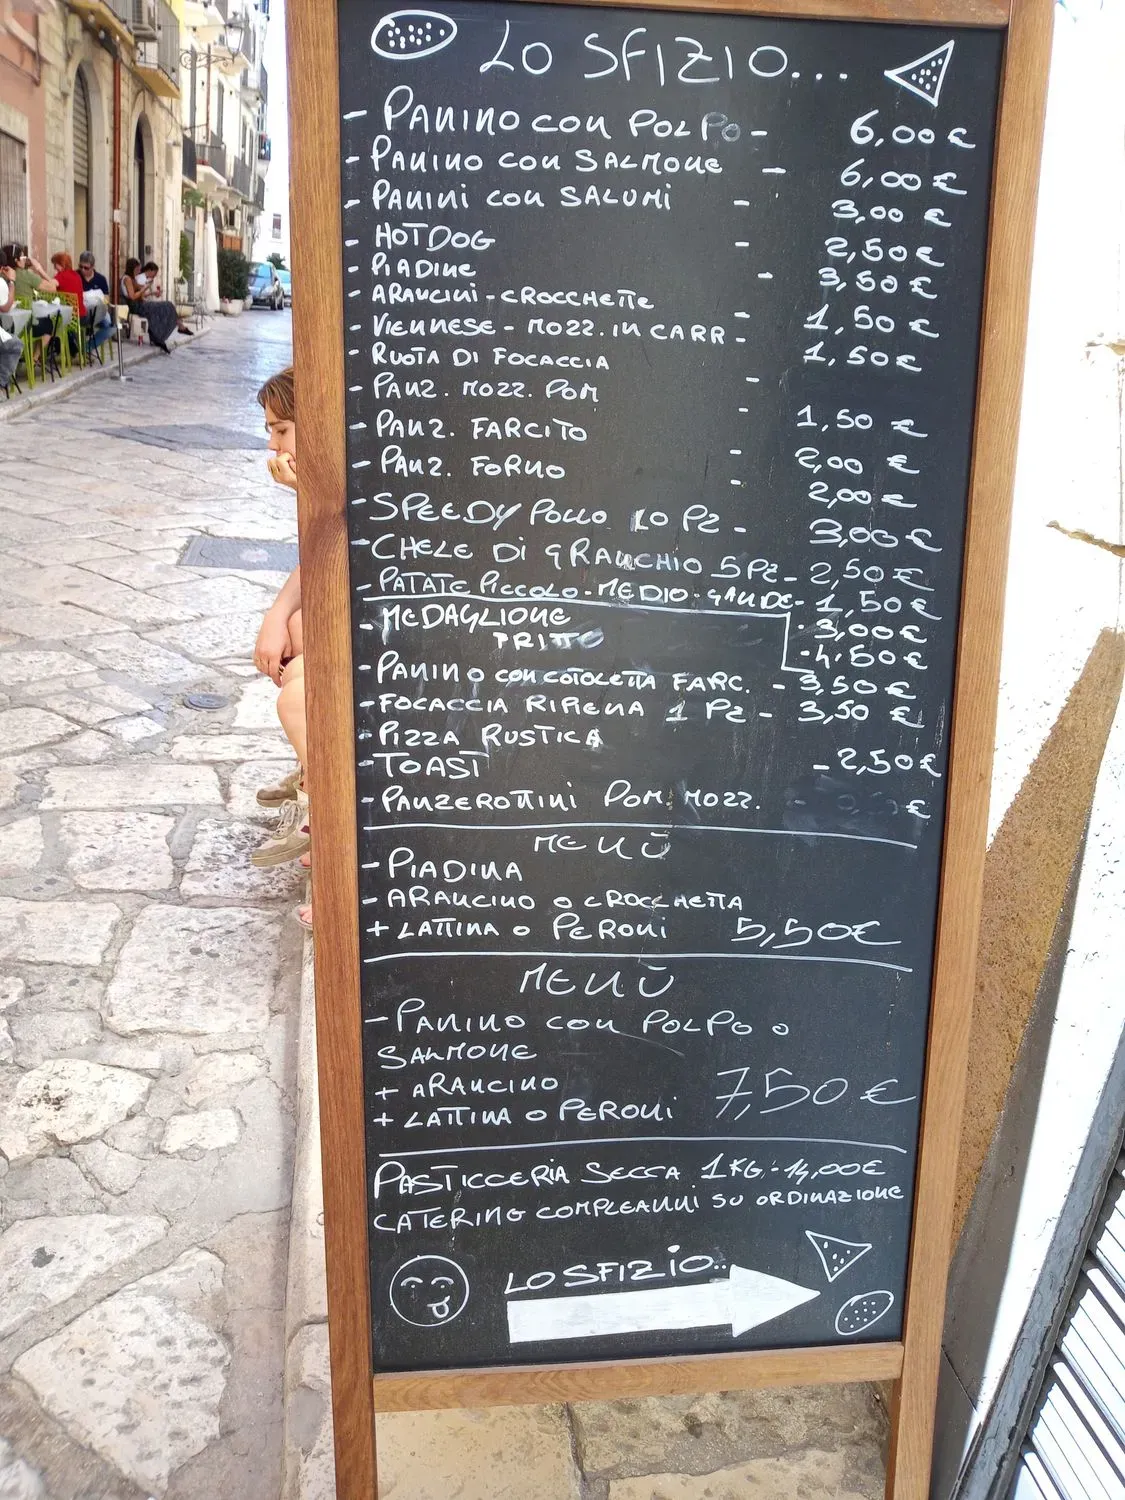 LO SFIZIO...
- PANINO CON POLPO - 6,00 €
- PANINO CON SALMONE - 6,00 €
- PANINI CON SALUMI - 3,00 €
- HOTDOG - 2,50 €
- PIADINE - 3,50 €
- ARANCINI - CROCCHETTE - 1,50 €
- VIENNESE - MOZZ. IN CARR - 1,50 €
- RUOTA DI FOCACCIA -
- PANZ. MOZZ. POM - 1,50 €
- PANZ. FARCITO - 2,00 €
- PANZ. FORNO - 2,00 €
- SPEEDY POLLO 10 PZ - 3,00 €
- CHELE DI GRANCHIO 5 PZ - 2,50 €
- PATATE PICCOLO - MEDIO - GRANDE - 1,50 €
- MEDAGLIONE · 3,00 €
FRITTO - 4,50 €
- PANINO CON COTOLETTA FARC. - 3,50 €
- FOCACCIA RIPIENA 1 PZ - 3,50 €
- PIZZA RUSTICA
- TOAST - 2,50 €
- PANZEROTTINI POM. MOZZ. €
MENÙ
- PIADINA
- ARANCINO O CROCCHETTA
+ LATTINA O PERONI 5,50 €
MENÙ
- PANINO CON POLPO O
SALMONE
+ ARANCINO 7,50 €
+ LATTINA O PERONI
PASTICCERIA SECCA 1 KG. - 14,00 €
CATERING COMPLEANNI SU ORDINAZIONE
LO SFIZIO..